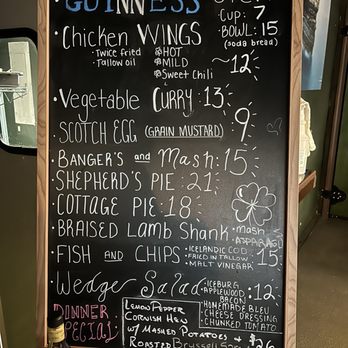 GUINNESS
CUP: 7
BOWL: 15
(soda bread)
Chicken WINGS
• Twice fried
• Tallow oil
HOT
MILD
Sweet Chili
~12
• Vegetable CURRY: 13
SCOTCH EGG (GRAIN MUSTARD) 9
• BANGER'S and MASH: 15
SHEPHERD'S PIE: 21
• COTTAGE PIE: 18
• BRAISED LAMB Shank • mash
ASPARAGUS
• FISH AND CHIPS • ICELANDIC COD
• FRIED IN TALLOW
• MALT VINEGAR
15
• Wedge Salad • ICEBURG
APPLEWOOD BACON
• HOMEMADE BLEU CHEESE DRESSING
• CHUNKED TOMATO
12
DINNER SPECIAL
LEMON PEPPER
CORNISH HEN
w/ MASHED POTATOES &
ROASTED Brussell
$26